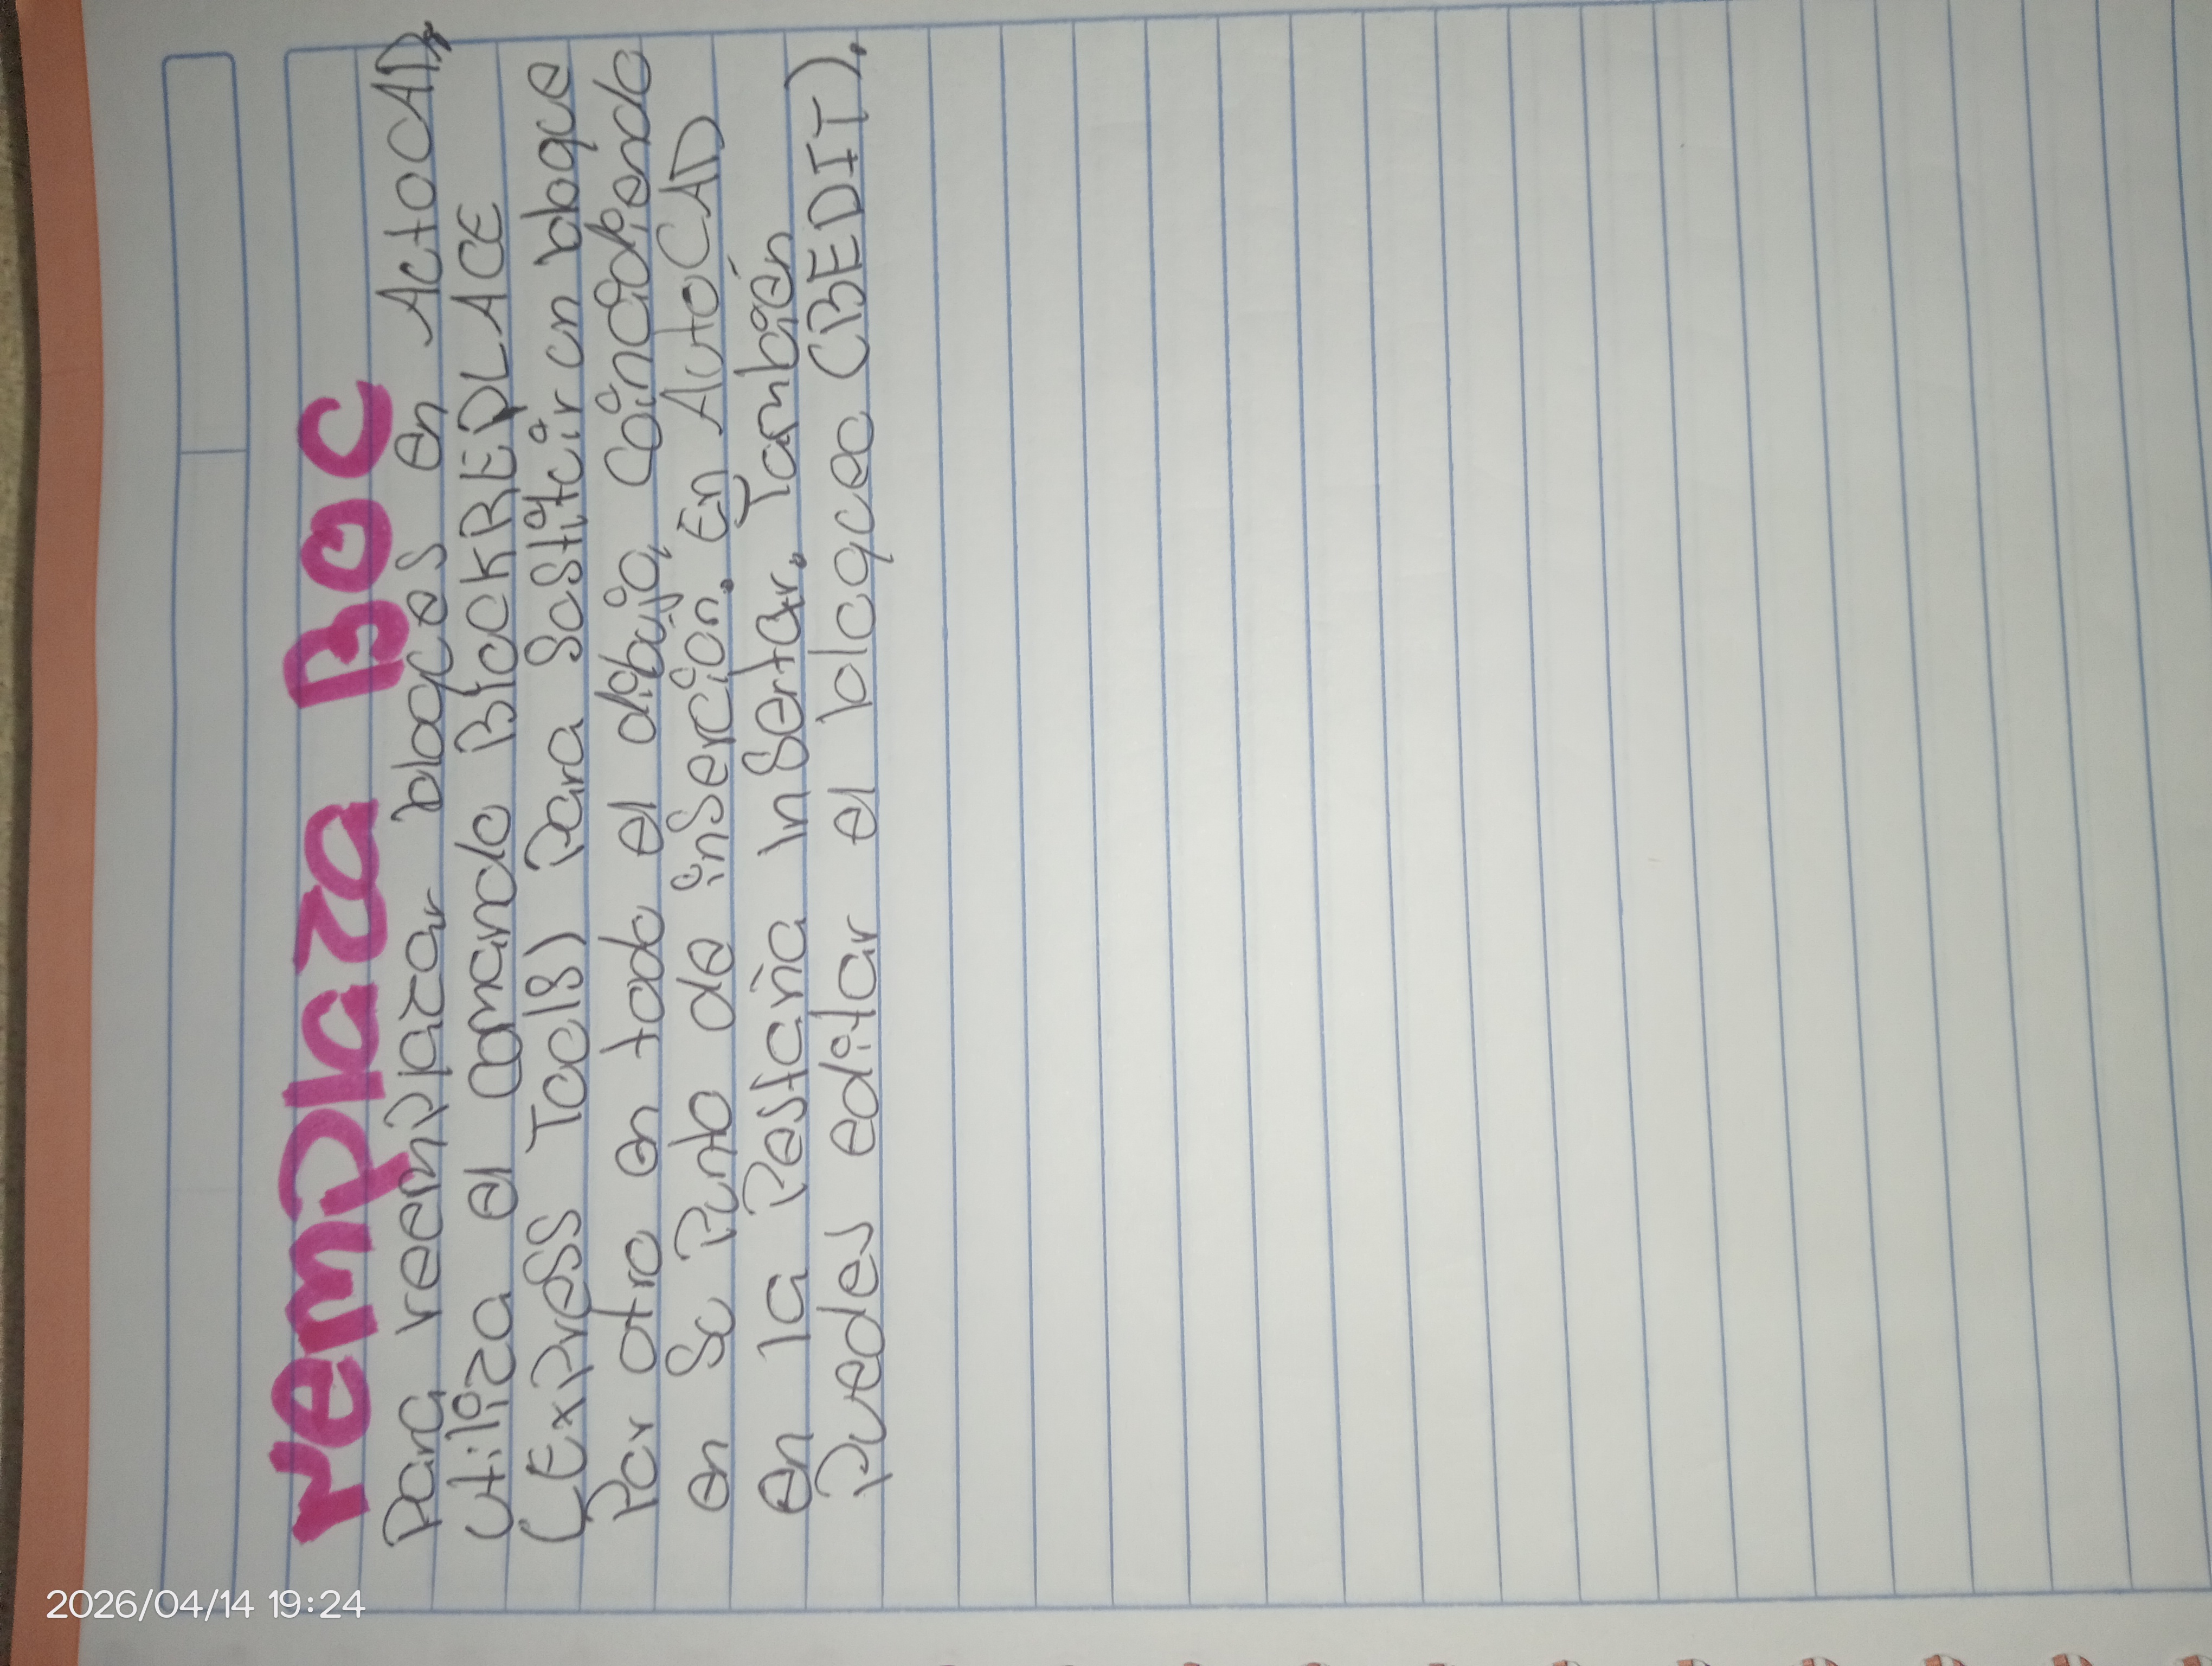 remplaza BOC
Para reemplazar bloques en AutoCAD,
utiliza el comando BlockREPLACE
(Express Tools) Para Sustituir un bloque
Por otro en todo el dibujo, Coincidiendo
en Su Punto de inserción. En AutoCAD
en la Pestaña Insertar. También
Puedes editar el bloqueo (BEDIT).
2026/04/14 19:24